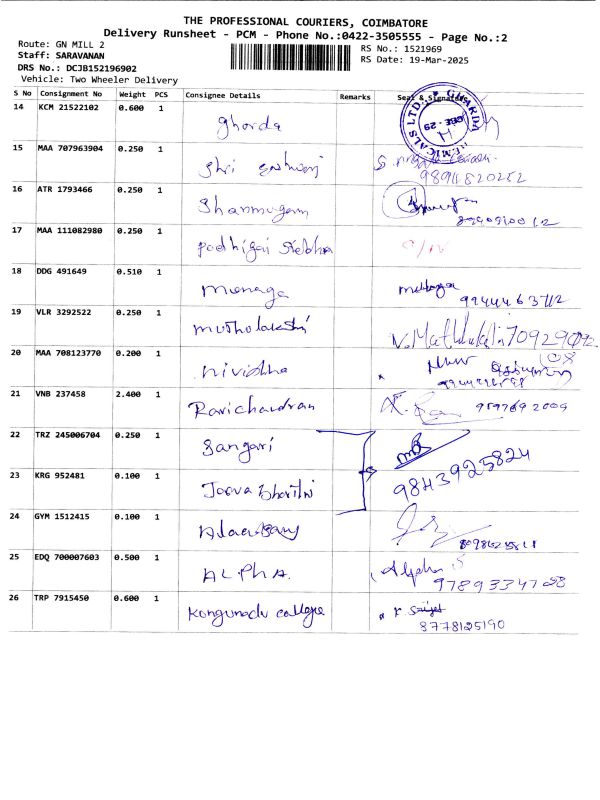 THE PROFESSIONAL COURIERS, COIMBATORE
Delivery Runsheet - PCM - Phone No.:0422-3505555 - Page No.:2
Route: GN MILL 2
Staff: SARAVANAN
DRS No.: DCJB152196902
Vehicle: Two Wheeler Delivery
RS No.: 1521969
RS Date: 19-Mar-2025
S No Consignment No Weight PCS Consignee Details Remarks Seal & Signature
14 KCM 21522102 0.600 1 Ghorda
15 MAA 707963904 0.250 1 Shri
16 ATR 1793466 0.250 1 Shanmugam
17 MAA 111082980 0.250 1 Podhigai
18 DDG 491649 0.510 1 Menaga 9944463712
19 VLR 3292522 0.250 1 Mutholakshi
20 MAA 708123770 0.200 1 Nivistha
21 VNB 237458 2.400 1 Ravichandran
22 TRZ 245006704 0.250 1 Sangari
23 KRG 952481 0.100 1 9843925824
24 GYM 1512415 0.100 1
25 EDQ 700007603 0.500 1 ALPHA. Alpha
26 TRP 7915450 0.600 1 Kongunadu college
8778125190